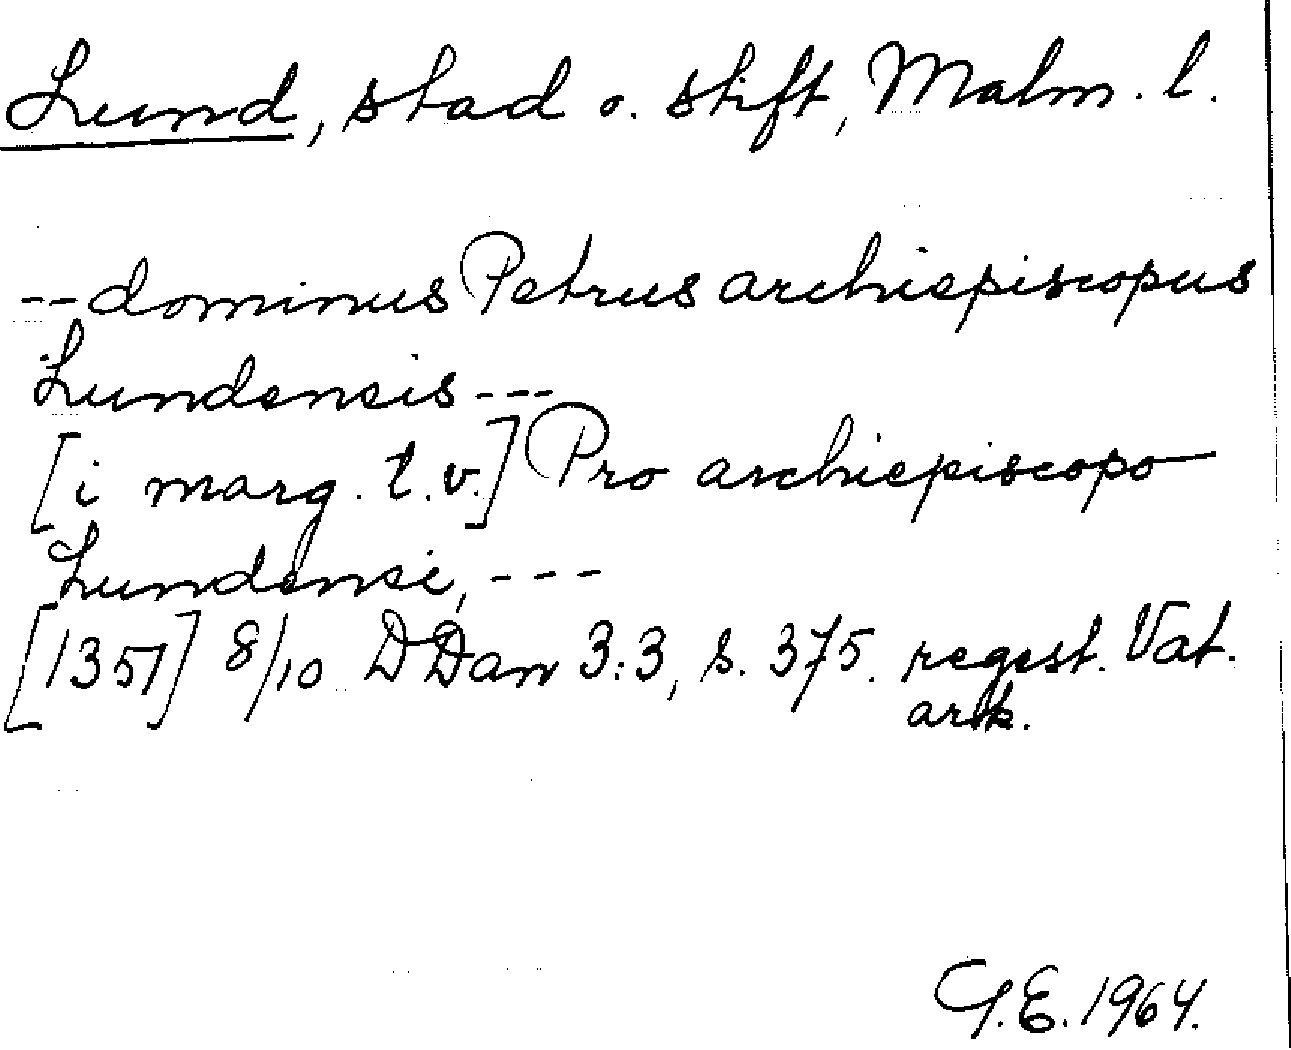 Lund, stad o. stift, Malm. l.
--dominus Petrus archiepiscopus
Lundensis ---
[i marg. t.v.] Pro archiepiscopo
Lundensi, ---
[1351] 8/10 DDan 3:3, s. 375. regest. Vat.
ark.
G.E. 1964.